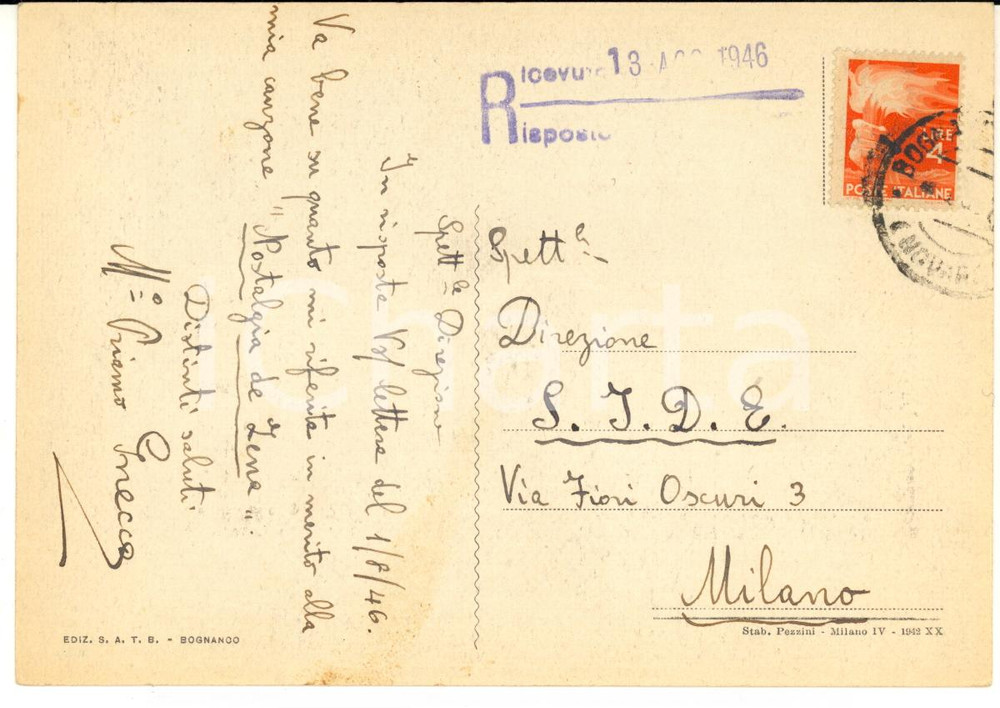 Spett.le Direzione
In risposta Vs/ lettera del 1/8/46.
Va bene su quanto mi riferite in merito alla
mia canzone "Nostalgia de Zena".
Distinti saluti
M.o Priamo Gnecco
EDIZ. S. A. T. B. - BOGNANCO
Ricevuto 13 AGO 1946
Risposto
LIRE
4
POSTE ITALIANE
Spett.le
Direzione
S. I. D. E.
Via Fiori Oscuri 3
Milano
Stab. Pezzini - Milano IV - 1942 XX
iCharta